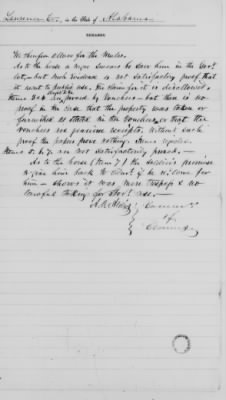 Lawrence Co., in the State of Alabama
REMARKS.
We therefore allow for the Mules.
As to the horse a negro swears he saw him in the Gov't
lot, but such evidence is not satisfactory proof that
it went to The claim for it is disallowed.
Items 3 & 4 are proved by vouchers – but there is no
proof in the case that the property was taken or
furnished as stated in the vouchers, or that the
vouchers are genuine receipts. Without such
proof the papers prove nothing. Items rejected.
Items 5. 6. 7 are not satisfactorily proved. –
As to the horse (Item 7) the soldier's promise
to give him back to Claim't if he w'd come for
him – shows it was mere trespass & no
lawful taking for Gov't use. –
A. O. Aldis
Commrs
of
Claims